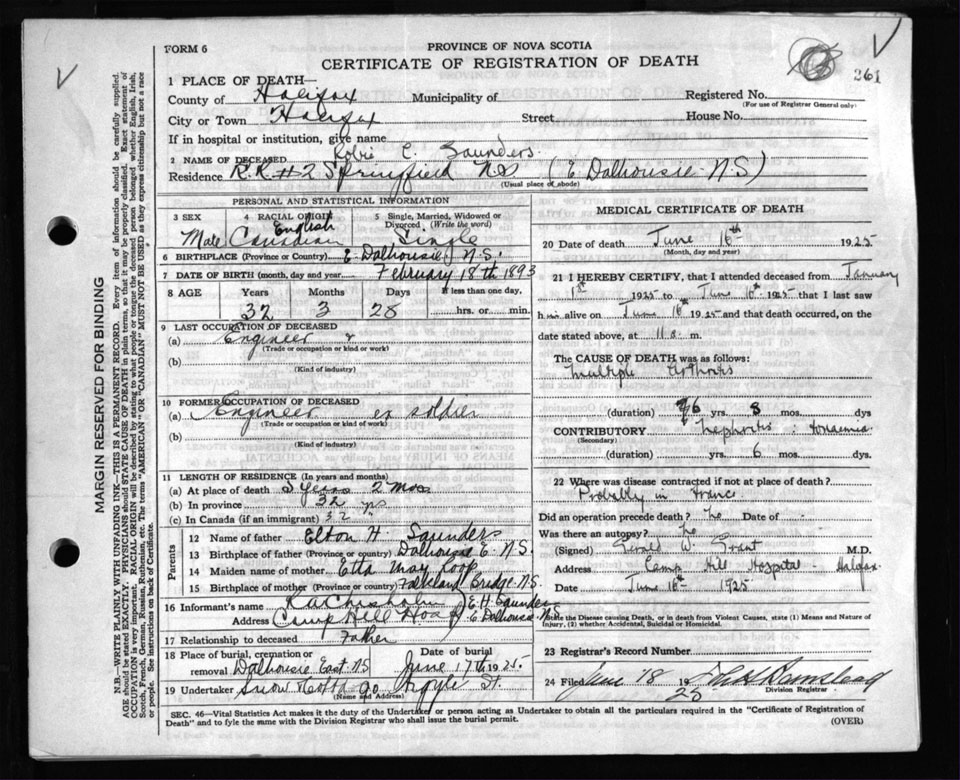 FORM 6
PROVINCE OF NOVA SCOTIA
CERTIFICATE OF REGISTRATION OF DEATH
261
MARGIN RESERVED FOR BINDING
N.B.—WRITE PLAINLY WITH UNFADING INK—THIS IS A PERMANENT RECORD. Every item of information should be carefully supplied.
AGE should be stated EXACTLY. PHYSICIANS should STATE CAUSE OF DEATH in plain terms, so that it may be properly classified. Exact statement of
OCCUPATION is very important. RACIAL ORIGIN will be described by stating to what people or tongue the deceased person belonged whether English, Irish,
Scotch, French, German, Russian, Ruthenian, etc. The terms "AMERICAN" OR "CANADIAN" MUST NOT BE USED as they express citizenship but not a race
or people. See instructions on back of Certificate.
1 PLACE OF DEATH—
County of Halifax Municipality of Registered No.
(For use of Registrar General only)
City or Town Halifax Street House No.
If in hospital or institution, give name
2 NAME OF DECEASED Robie C. Saunders
Residence R.R. #2 Springfield N.S (E. Dalhousie N.S)
(Usual place of abode)
PERSONAL AND STATISTICAL INFORMATION
3 SEX 4 RACIAL ORIGIN 5 Single, Married, Widowed or Divorced (Write the word)
Male English Canadian Single
6 BIRTHPLACE (Province or Country) E Dalhousie N.S.
7 DATE OF BIRTH (month, day and year) February 18th 1893
8 AGE Years Months Days If less than one day,
32 3 28 hrs. or min.
9 LAST OCCUPATION OF DECEASED
(a) Engineer
(Trade or occupation or kind or work)
(b)
(Kind of industry)
10 FORMER OCCUPATION OF DECEASED
(a) Engineer ex soldier
(Trade or occupation or kind of work)
(b)
(Kind of industry)
11 LENGTH OF RESIDENCE (In years and months)
(a) At place of death years 2 mos
(b) In province 32 yrs
(c) In Canada (if an immigrant) 32
Parents
12 Name of father Elton H. Saunders
13 Birthplace of father (Province or country) Dalhousie E. N.S.
14 Maiden name of mother Etta May Roop
15 Birthplace of mother (Province or country) Falkland Bridge N.S.
16 Informant's name Chisholm E.H. Saunders
Address Camp Hill Hosp E. Dalhousie N.S
17 Relationship to deceased Father
18 Place of burial, cremation or removal Dalhousie East N.S
Date of burial June 17th 1925
19 Undertaker Snow & Co Ltd 90 Argyle St.
(Name and Address)
MEDICAL CERTIFICATE OF DEATH
20 Date of death June 16th 1925
(Month, day and year)
21 I HEREBY CERTIFY, that I attended deceased from January
1st 1925 to June 16th 1925 that I last saw
him alive on June 16th 1925 and that death occurred, on the
date stated above, at 11 a. m.
The CAUSE OF DEATH was as follows:
Multiple Arthritis
(duration) 6 yrs. 8 mos. dys
CONTRIBUTORY Nephritis
(Secondary)
(duration) yrs. 6 mos. dys
22 Where was disease contracted if not at place of death?
Probably in France
Did an operation precede death? No Date of -
Was there an autopsy? No
(Signed) Gerald W. Grant M.D.
Address Camp Hill Hospital - Halifax
Date June 16th 1925
State the Disease causing Death, or in death from Violent Causes, state (1) Means and Nature of Injury, (2) whether Accidental, Suicidal or Homicidal.
23 Registrar's Record Number
24 Filed June 18 1925
Division Registrar
SEC. 46—Vital Statistics Act makes it the duty of the Undertaker or person acting as Undertaker to obtain all the particulars required in the "Certificate of Registration of
Death" and to fyle the same with the Division Registrar who shall issue the burial permit.
(OVER)